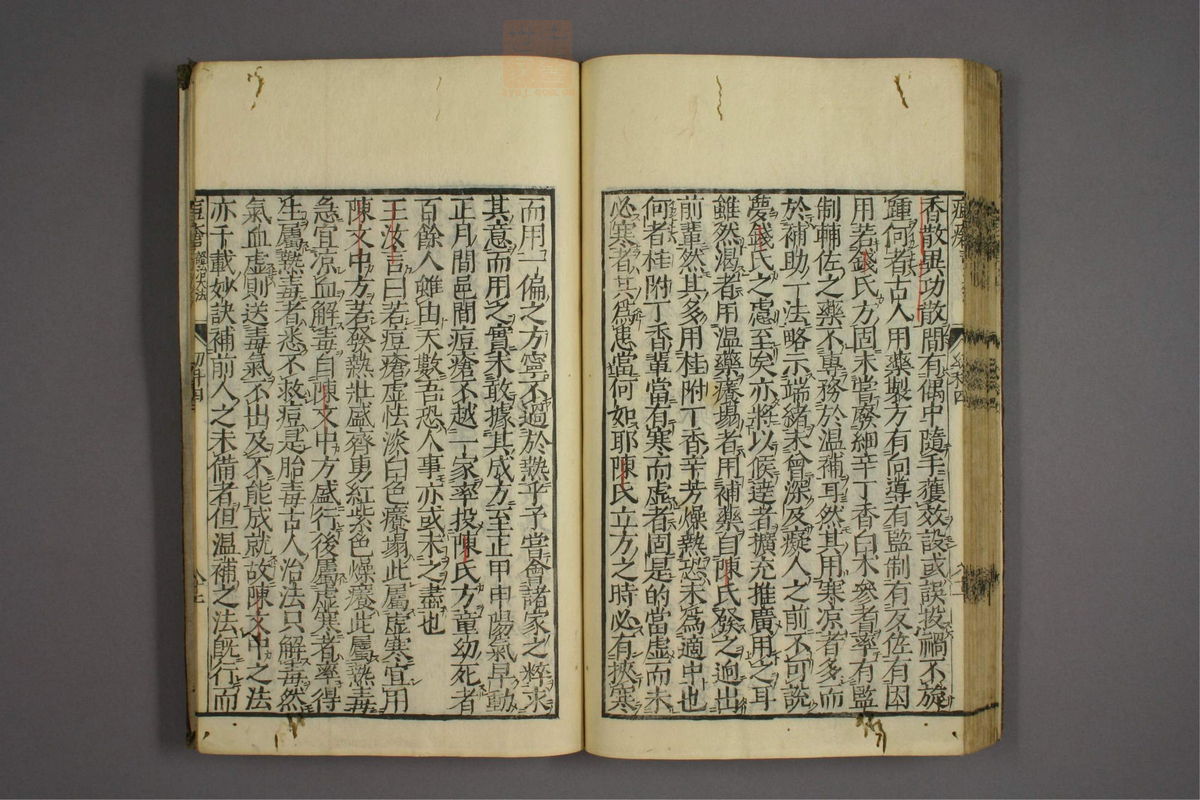 香散異功散間有偶中隨手獲效設或誤投禍不旋
踵何者古人用藥製方有向導有監制有反佐有因
用若錢氏方固未嘗廢細辛丁香白朮參者率有監
制輔佐之藥不專務於温補耳然其用寒凉者多而
於補助一法略示端緒未曾深及癡人之前不可説
夢錢氏之慮至矣亦將以候達者擴充推廣用之耳
雖然渴者用温藥癢塌者用補藥自陳氏發之迥出
前輩然其多用桂附丁香辛芳燥熱恐未爲適中也
何者桂附丁香輩當有寒而虚者固是的當虚而未
必寒者其爲患當何如耶陳氏立方之時必有挾寒
而用一偏之方寧不過於熱乎予嘗會諸家之粹求
其意而用之實未敢據其成方至正甲申陽氣早動
正月間邑間痘瘡不越一家率投陳氏方童幼死者
百餘人雖由天數吾恐人事亦或未之盡也
王汝言曰若痘瘡虚怯淡白色癢塌此屬虚寒宜用
陳文中方若發熱壯盛齊勇紅紫色燥癢此屬熱毒
急宜凉血解毒自陳文中方盛行後屬虚寒者率得
生屬熱毒者悉不救痘是胎毒古人治法只解毒然
氣血虚則送毒氣不出及不能成就故陳文中之法
亦千載妙訣補前人之未備者但温補之法既行而
痘瘡
證治大法